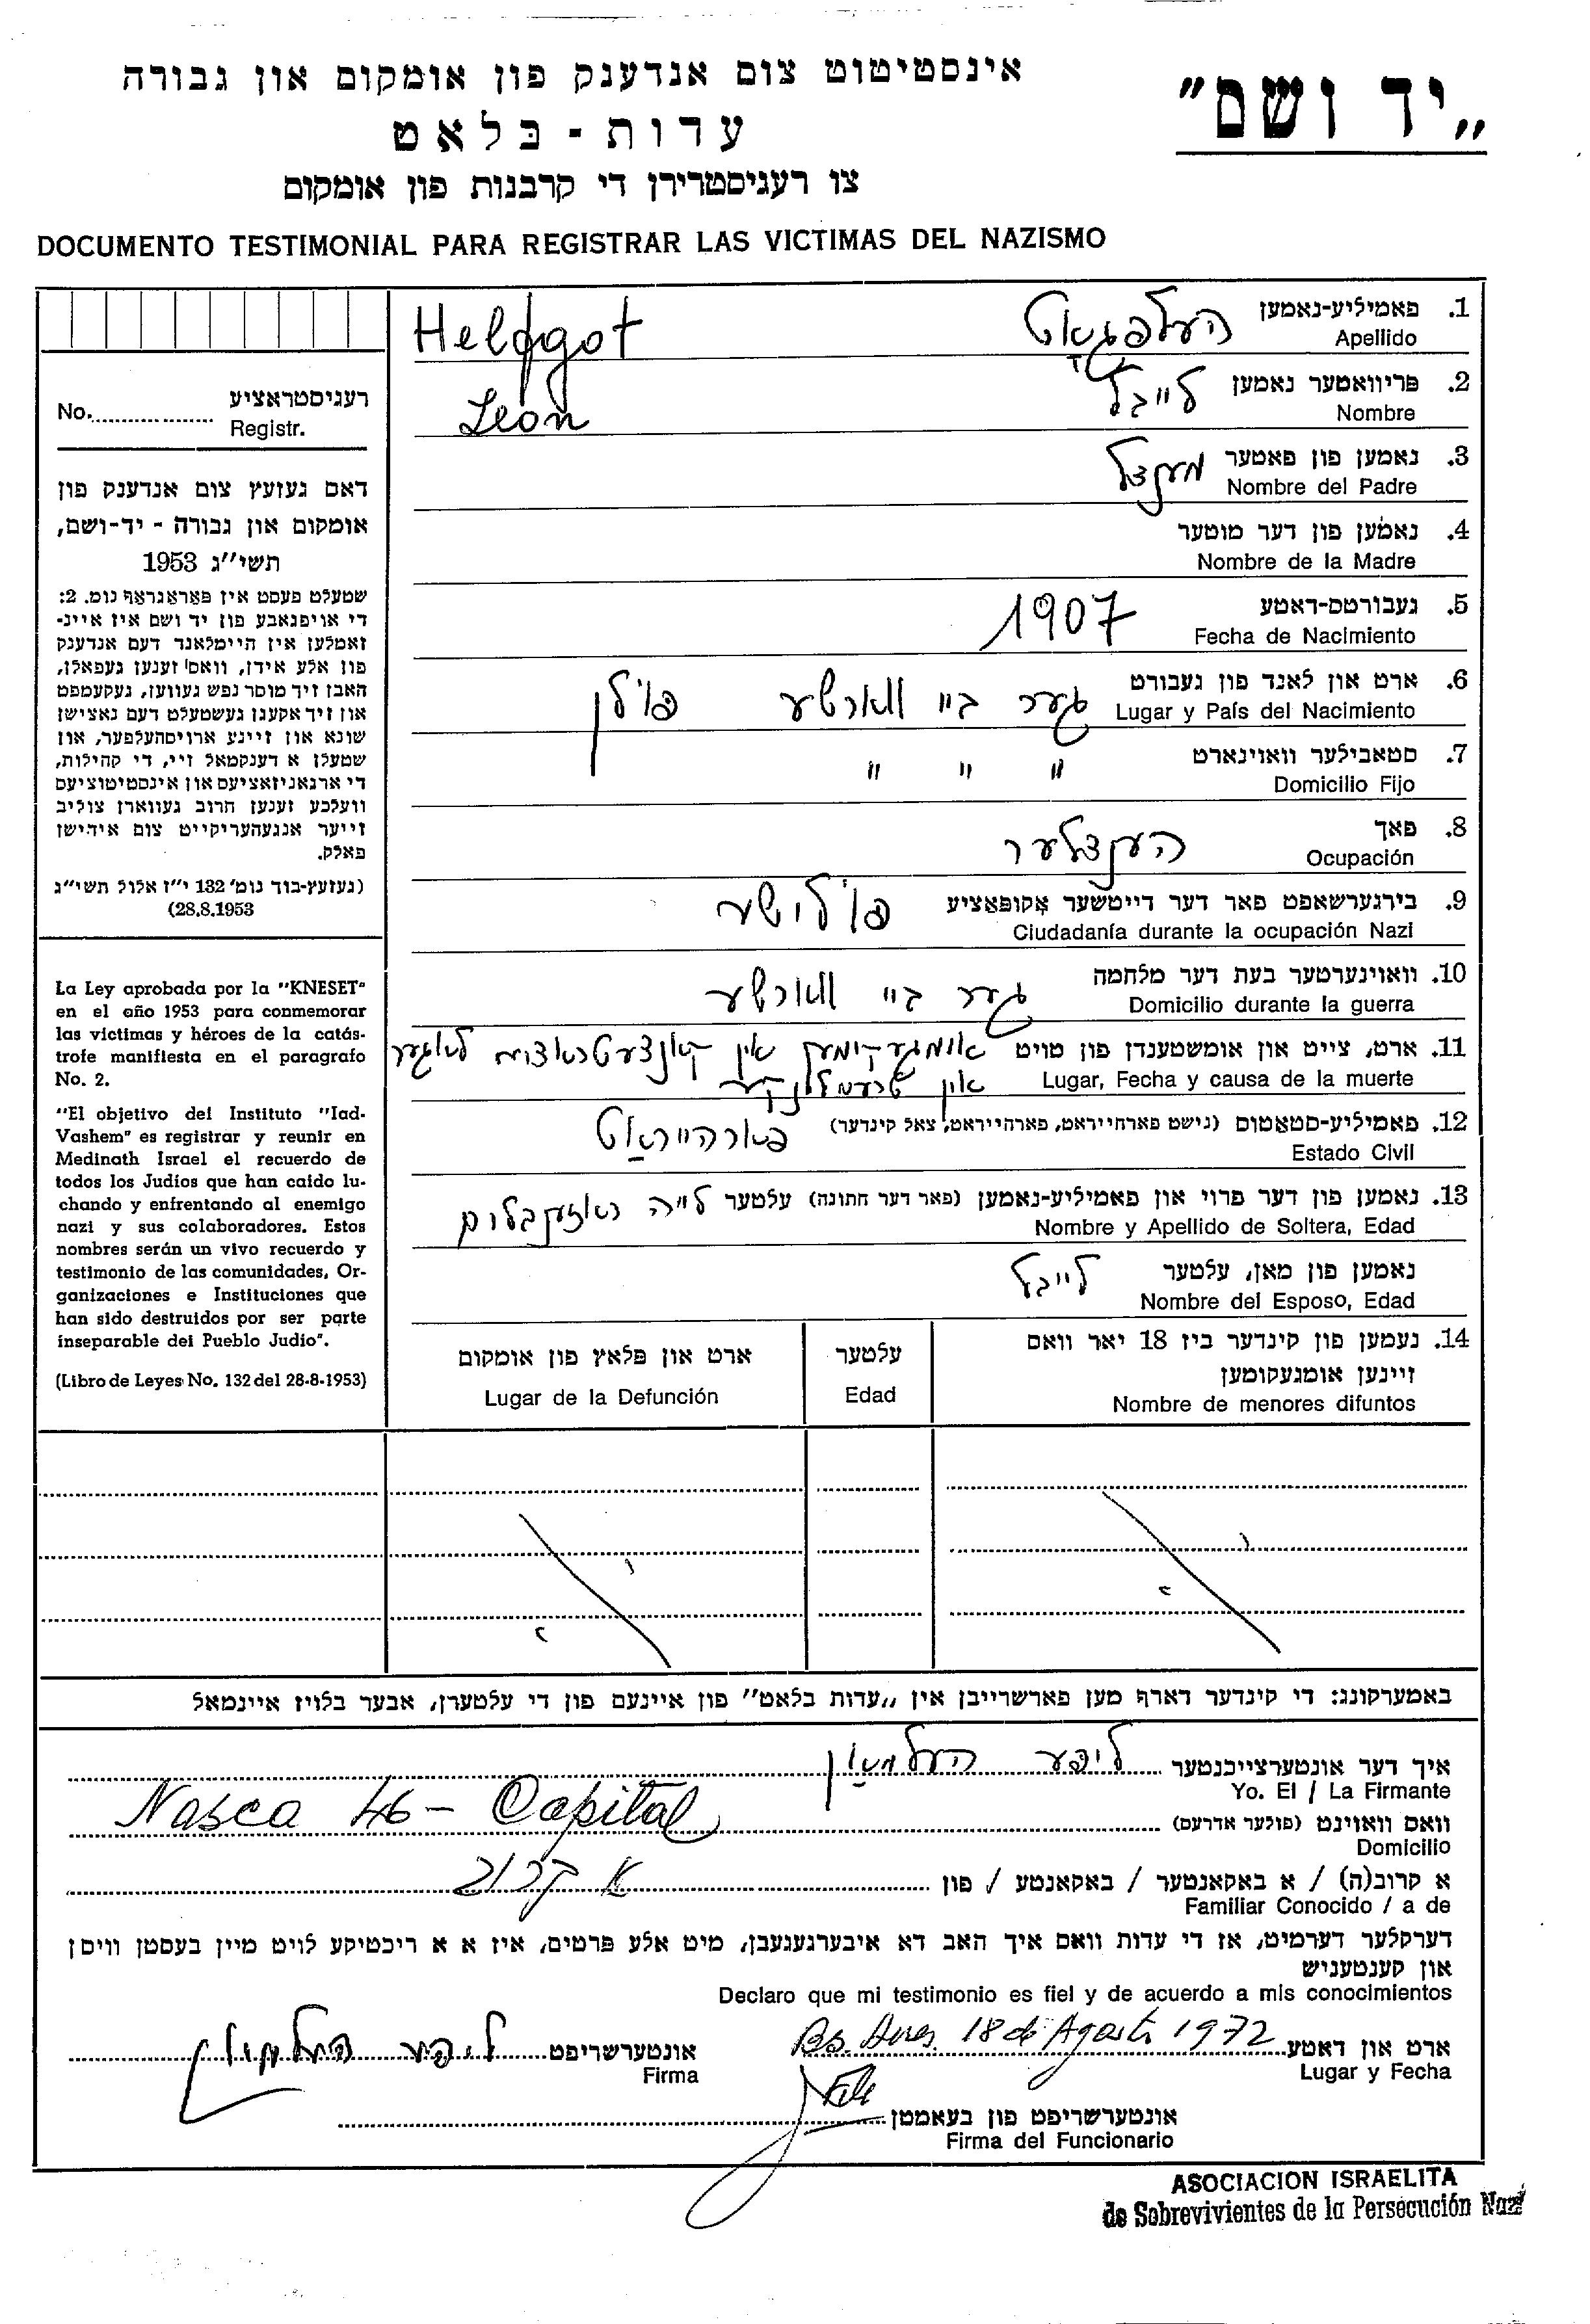 „יד ושם"
אינסטיטוט צום אנדענק פון אומקום און גבורה
עדות - בלאט
צו רעגיסטרירן די קרבנות פון אומקום
DOCUMENTO TESTIMONIAL PARA REGISTRAR LAS VICTIMAS DEL NAZISMO
רעגיסטראציע
No. Registr.
דאס געזעץ צום אנדענק פון
אומקום און גבורה - יד-ושם,
תשי"ג 1953
שטעלט פעסט אין פאראגראף נומ. 2:
די אויפגאבע פון יד ושם איז איינ-
זאמלען אין היימלאנד דעם אנדענק
פון אלע אידן, וואס זענען געפאלן,
האבן זיך מוסר נפש געווען, געקעמפט
און זיך אקעגן געשטעלט דעם נאצישן
שונא און זיינע ארויסהעלפער, און
שטעלן א דענקמאל זיי, די קהילות,
די ארגאניזאציעס און אינסטיטוציעס
וועלכע זענען חרוב געווארן צוליב
זייער אנגעהעריקייט צום אידישן
פאלק.
(געזעץ-בוך נומ' 132 י"ז אלול תשי"ג
(28.8.1953
La Ley aprobada por la "KNESET"
en el año 1953 para conmemorar
las víctimas y héroes de la catás-
trofe manifiesta en el paragrafo
No. 2.
"El objetivo del Instituto "Iad-
Vashem" es registrar y reunir en
Medinath Israel el recuerdo de
todos los Judios que han caído lu-
chando y enfrentando al enemigo
nazi y sus colaboradores. Estos
nombres serán un vivo recuerdo y
testimonio de las comunidades, Or-
ganizaciones e Instituciones que
han sido destruidos por ser parte
inseparable del Pueblo Judio".
(Libro de Leyes No. 132 del 28-8-1953)
1. פאמיליע-נאמען העלפגאט Helfgot
Apellido
2. פריוואטער נאמען לייבל León
Nombre
3. נאמען פון פאטער מענדל
Nombre del Padre
4. נאמען פון דער מוטער
Nombre de la Madre
5. געבורטס-דאטע 1907
Fecha de Nacimiento
6. ארט און לאנד פון געבורט גער ביי ווארשע פוילן
Lugar y País del Nacimiento
7. סטאבילער וואוינארט " " "
Domicilio Fijo
8. פאך הענדלער
Ocupación
9. בירגערשאפט פאר דער דייטשער אקופאציע פוילישע
Ciudadanía durante la ocupación Nazi
10. וואוינערטער בעת דער מלחמה גער ביי ווארשע
Domicilio durante la guerra
11. ארט, צייט און אומשטענדן פון טויט אומגעקומען אין קאנצעטראציע לאגער
Lugar, Fecha y causa de la muerte אין טרעבלינקע
12. פאמיליע-סטאטוס (נישט פארהייראט, פארהייראט, צאל קינדער) פארהייראט
Estado Civil
13. נאמען פון דער פרוי און פאמיליע-נאמען (פאר דער חתונה) עלטער לייה ראזענבלום
Nombre y Apellido de Soltera, Edad
נאמען פון מאן, עלטער לייבל
Nombre del Esposo, Edad
14. נעמען פון קינדער ביז 18 יאר וואס
זיינען אומגעקומען
Nombre de menores difuntos
עלטער
Edad
ארט און פלאץ פון אומקום
Lugar de la Defunción
באמערקונג: די קינדער דארף מען פארשרייבן אין „עדות בלאט" פון איינעם פון די עלטערן, אבער בלויז איינמאל
איך דער אונטערצייכנטער ליפע העלמאן
Yo. El / La Firmante
וואס וואוינט (פולער אדרעס) Nasca 46 - Capital
Domicilio
א קרוב(ה) / א באקאנטער / באקאנטע / פון א קרוב
Familiar Conocido / a de
דערקלער דערמיט, אז די עדות וואס איך האב דא איבערגעגעבן, מיט אלע פרטים, איז א א ריכטיקע לויט מיין בעסטן וויסן
און קענטעניש
Declaro que mi testimonio es fiel y de acuerdo a mis conocimientos
ארט און דאטע Bs. Aires 18 de Agosto 1972 אונטערשריפט ליפע העלמאן
Lugar y Fecha Firma
אונטערשריפט פון בעאמטן
Firma del Funcionario
ASOCIACION ISRAELITA
de Sobrevivientes de la Persecución Nazi